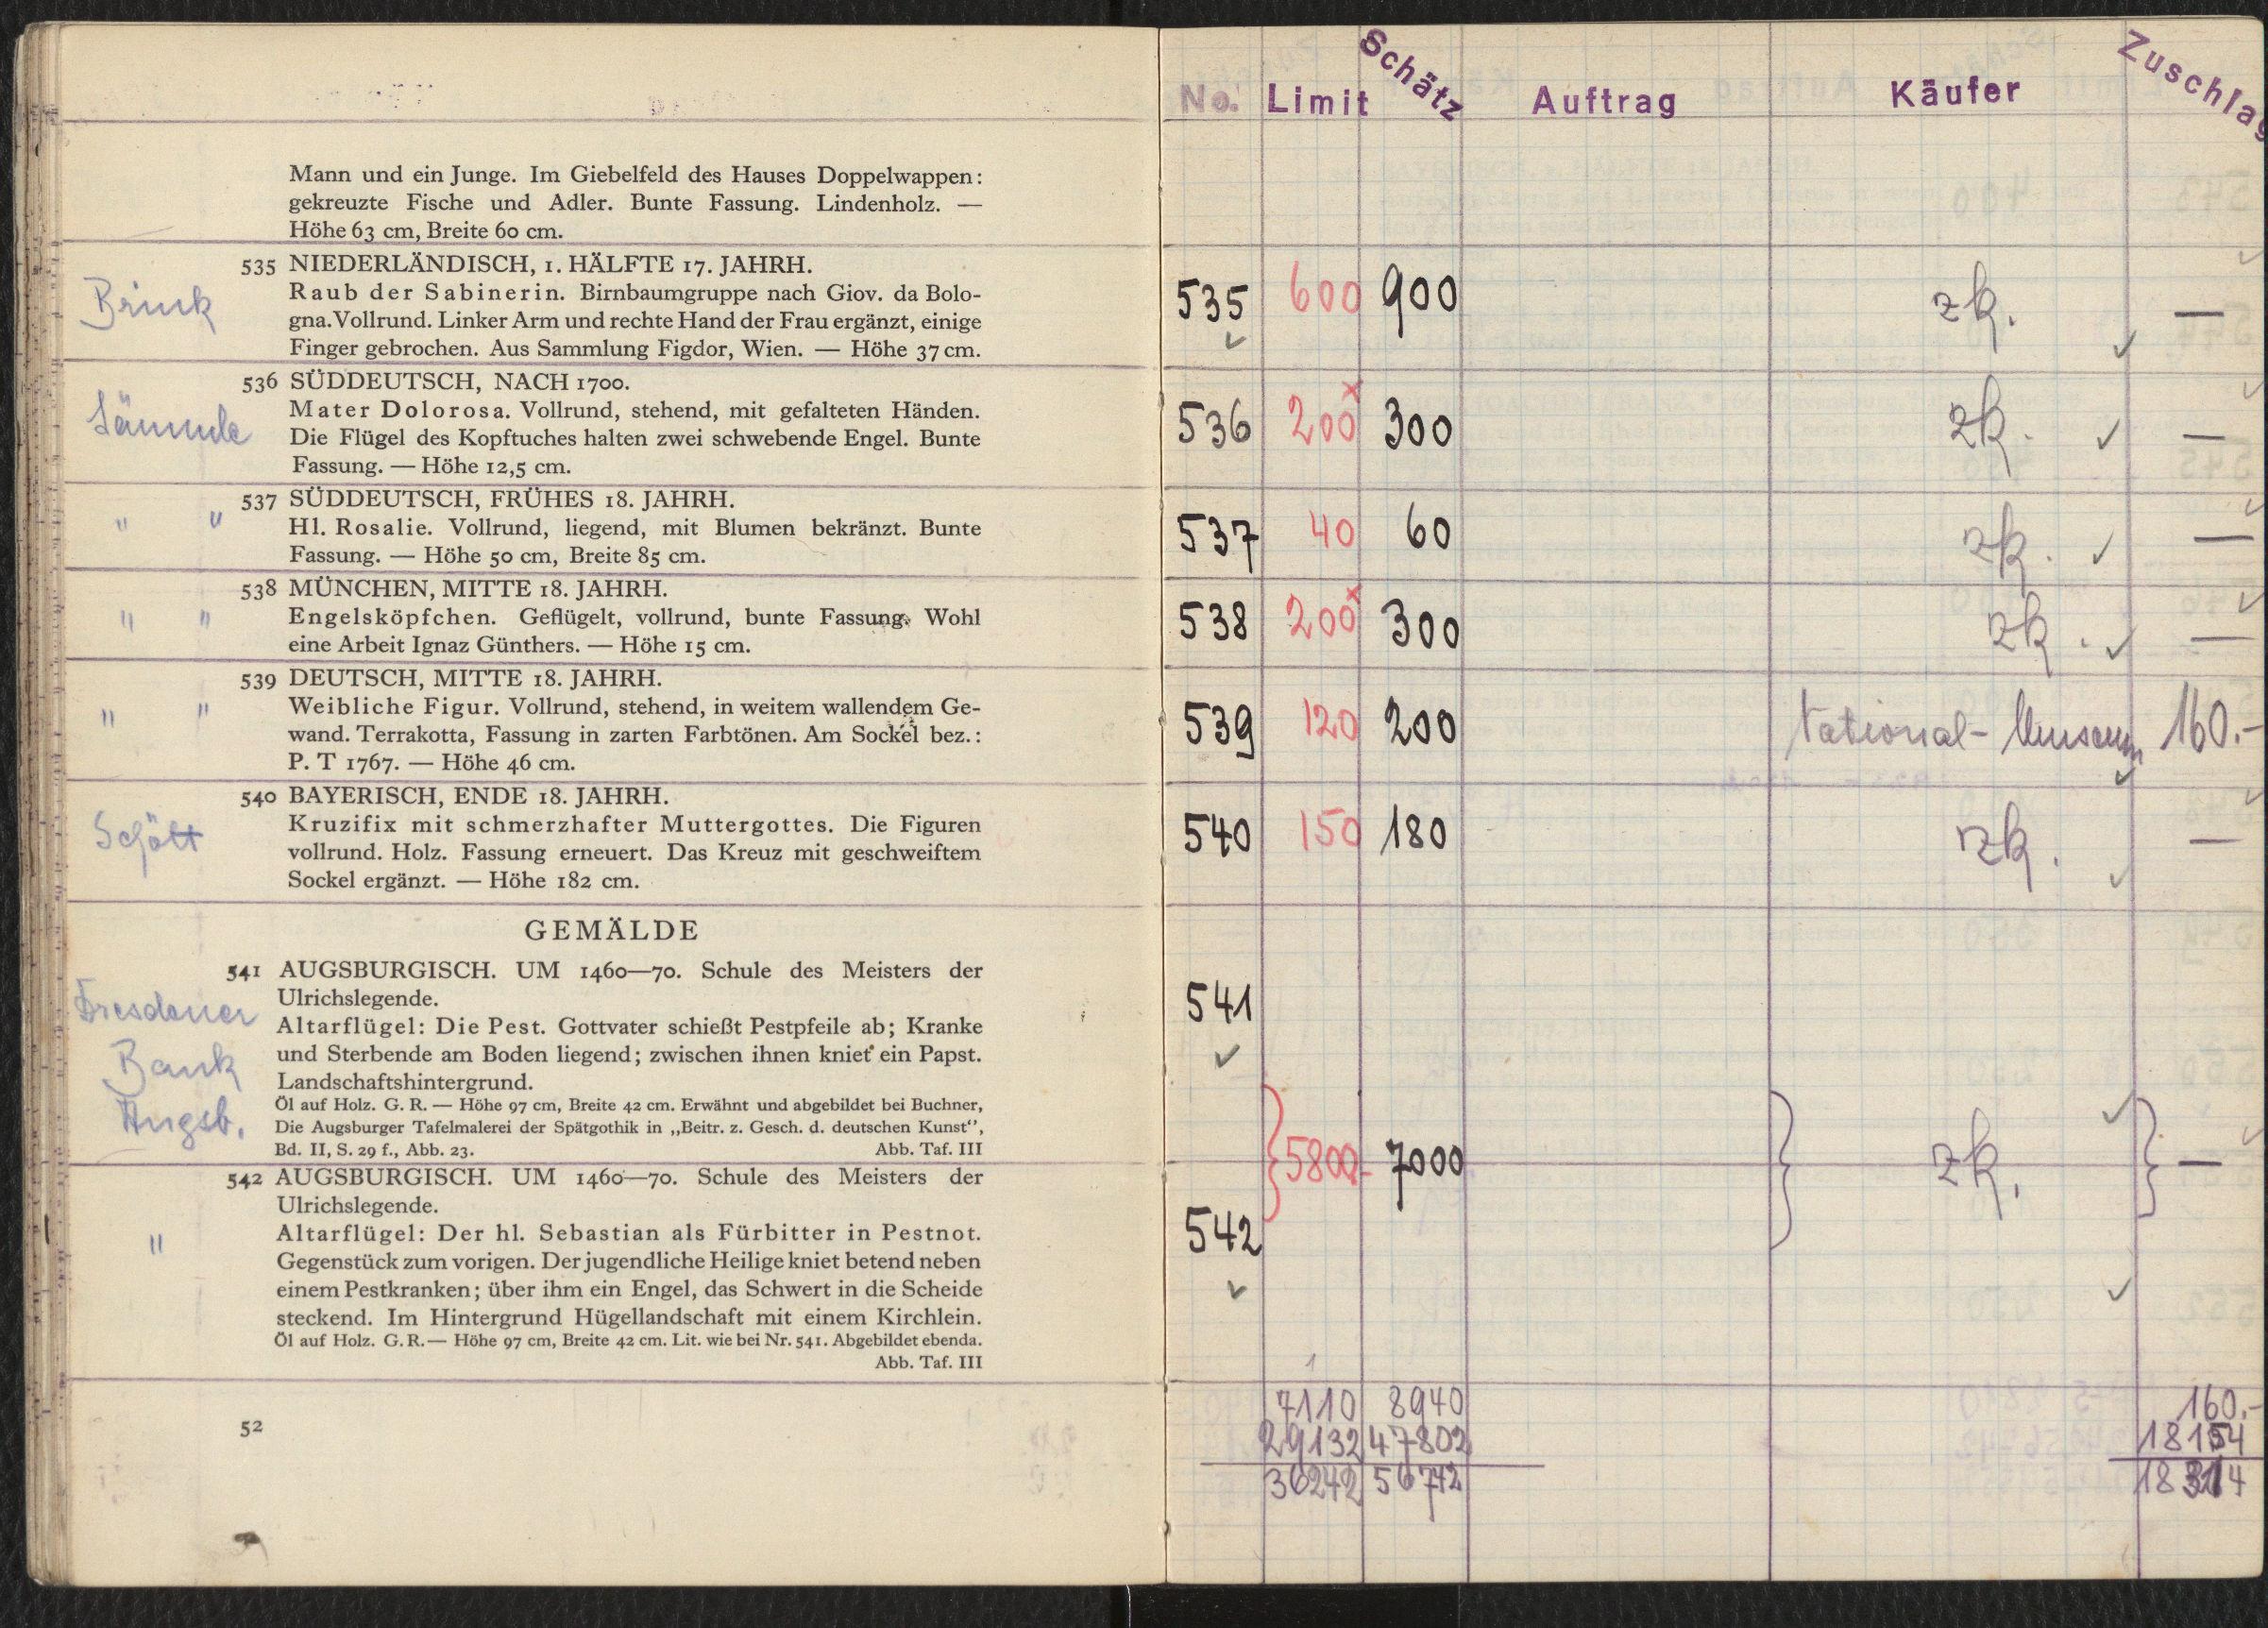 Mann und ein Junge. Im Giebelfeld des Hauses Doppelwappen:
gekreuzte Fische und Adler. Bunte Fassung. Lindenholz. —
Höhe 63 cm, Breite 60 cm.
Brink
535 NIEDERLÄNDISCH, 1. HÄLFTE 17. JAHRH.
Raub der Sabinerin. Birnbaumgruppe nach Giov. da Bolo-
gna. Vollrund. Linker Arm und rechte Hand der Frau ergänzt, einige
Finger gebrochen. Aus Sammlung Figdor, Wien. — Höhe 37 cm.
Lämmle
536 SÜDDEUTSCH, NACH 1700.
Mater Dolorosa. Vollrund, stehend, mit gefalteten Händen.
Die Flügel des Kopftuches halten zwei schwebende Engel. Bunte
Fassung. — Höhe 12,5 cm.
" "
537 SÜDDEUTSCH, FRÜHES 18. JAHRH.
Hl. Rosalie. Vollrund, liegend, mit Blumen bekränzt. Bunte
Fassung. — Höhe 50 cm, Breite 85 cm.
" "
538 MÜNCHEN, MITTE 18. JAHRH.
Engelsköpfchen. Geflügelt, vollrund, bunte Fassung. Wohl
eine Arbeit Ignaz Günthers. — Höhe 15 cm.
" "
539 DEUTSCH, MITTE 18. JAHRH.
Weibliche Figur. Vollrund, stehend, in weitem wallendem Ge-
wand. Terrakotta, Fassung in zarten Farbtönen. Am Sockel bez.:
P. T 1767. — Höhe 46 cm.
Schött
540 BAYERISCH, ENDE 18. JAHRH.
Kruzifix mit schmerzhafter Muttergottes. Die Figuren
vollrund. Holz. Fassung erneuert. Das Kreuz mit geschweiftem
Sockel ergänzt. — Höhe 182 cm.
GEMÄLDE
Dresdener
Bank
Augsb.
541 AUGSBURGISCH. UM 1460—70. Schule des Meisters der
Ulrichslegende.
Altarflügel: Die Pest. Gottvater schießt Pestpfeile ab; Kranke
und Sterbende am Boden liegend; zwischen ihnen kniet ein Papst.
Landschaftshintergrund.
Öl auf Holz. G. R. — Höhe 97 cm, Breite 42 cm. Erwähnt und abgebildet bei Buchner,
Die Augsburger Tafelmalerei der Spätgothik in „Beitr. z. Gesch. d. deutschen Kunst“,
Bd. II, S. 29 f., Abb. 23. Abb. Taf. III
"
542 AUGSBURGISCH. UM 1460—70. Schule des Meisters der
Ulrichslegende.
Altarflügel: Der hl. Sebastian als Fürbitter in Pestnot.
Gegenstück zum vorigen. Der jugendliche Heilige kniet betend neben
einem Pestkranken; über ihm ein Engel, das Schwert in die Scheide
steckend. Im Hintergrund Hügellandschaft mit einem Kirchlein.
Öl auf Holz. G. R. — Höhe 97 cm, Breite 42 cm. Lit. wie bei Nr. 541. Abgebildet ebenda.
Abb. Taf. III
52
No. Limit Schätz Auftrag Käufer Zuschlag
535 600 900 zk. —
536 200 x 300 zk. —
537 40 60 zk. —
538 200 x 300 zk. —
539 120 200 National-Museum 160.-
540 150 180 zk. —
541
5800.- 7000 zk. —
542
7110 8940 160.-
29132 47802 18154
36242 56742 18314